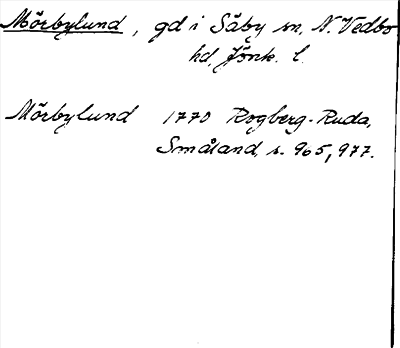 Mörbylund, gd i Säby sn, N. Vedbo
hd, Jönk. l.
Mörbylund 1770 Rogberg-Ruda,
Småland, s. 965, 977.